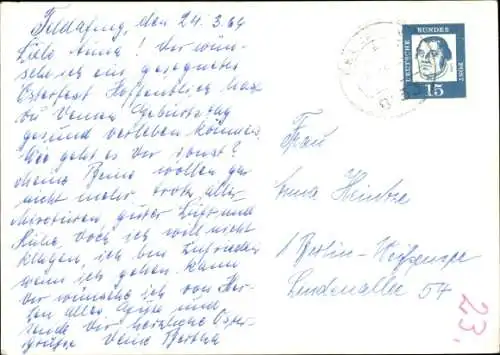 Feldafing, den 24.3.64
Liebe Anna! Dir wün-
sche ich ein gesegnetes
Osterfest Hoffentlich hast
du Deinen Geburtstag
gesund verleben können.
Wie geht es Dir sonst?
Meine Beine wollen gar
nicht mehr trotz aller
guter Luft und
Ruhe, doch ich will nicht
klagen, ich bin zufrieden
wenn ich gehen kann
Dir wünsche ich von Her-
zen alles Gute und
sende Dir herzliche Oster-
grüsse Deine Bertha
DEUTSCHE BUNDES POST
15
Frau
Anna Heintze
1 Berlin-Weißensee
Lindenallee 54
23.